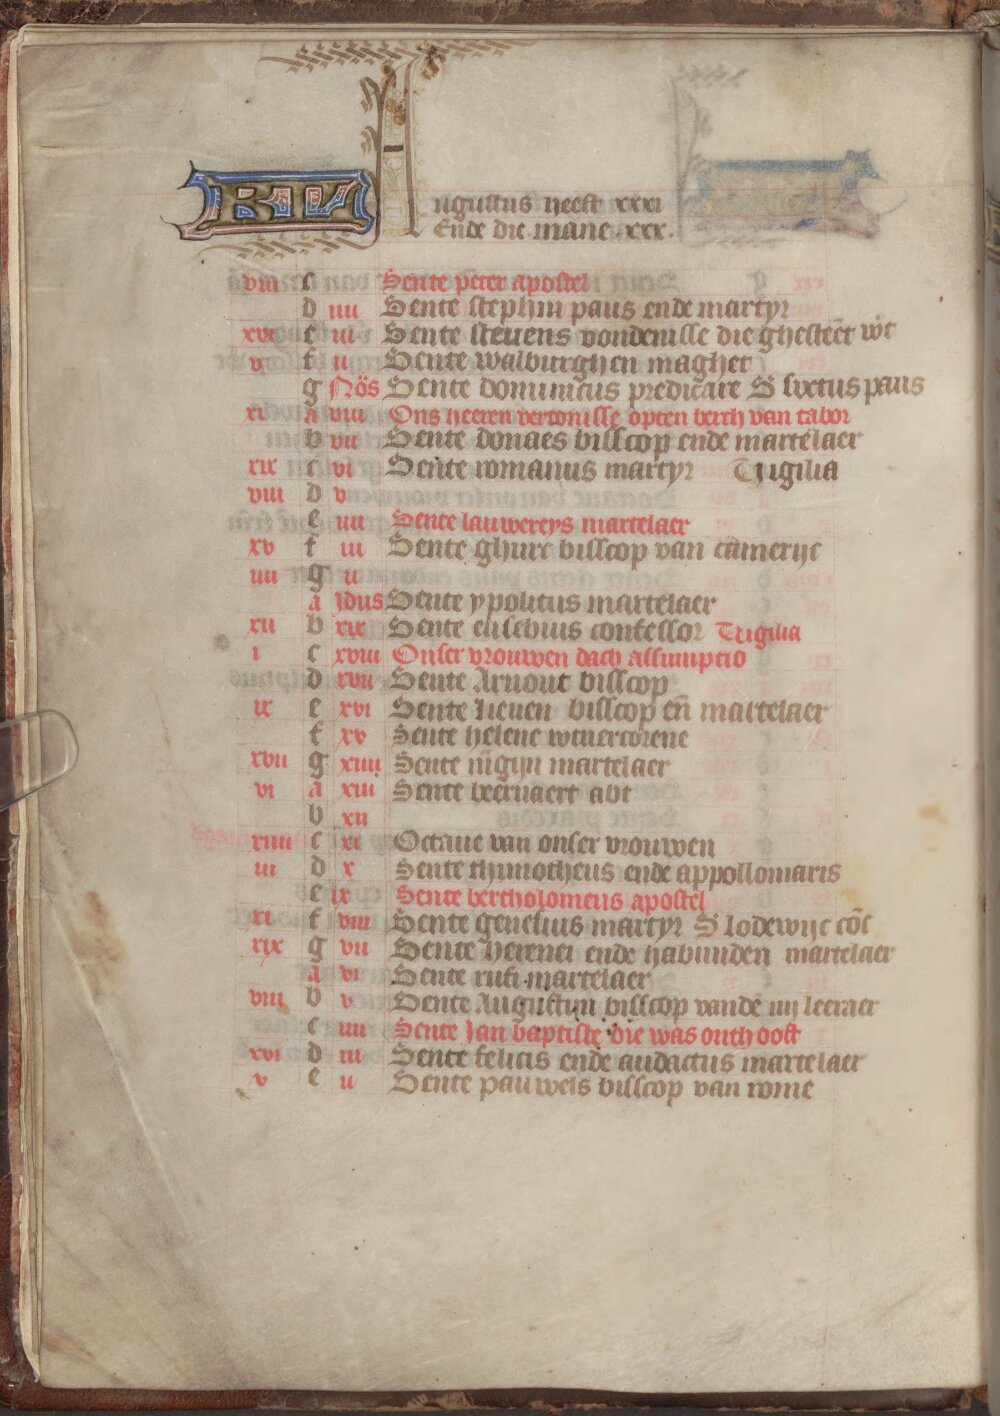 KL Augustus heeft xxxi
Ende die mane .xxx.
viii c Sente peter apostel
d iiii Sente stephin paus ende martyr
xvi e iii Sente steuens vondenisse die ghesteēt wt
v f ii Sente walburghen maghet
g Nōs Sente dominicus predicare S sixtus paus
xi a viii Ons heeren vertonisse opten berch van tabor
b vii Sente donaes bisscop ende martelaer
xix c vi Sente romanus martyr Vigilia
viii d v
e iiii Sente lauwereys martelaer
xv f iii Sente ghuric bisscop van camerijc
iiii g ii
a idus Sente ypolitus martelaer
xii b xix Sente eusebius confessor Vigilia
i c xviii Onser vrouwen dach assumptio
d xvii Sente Arnout bisscop
ix e xvi Sente lieuen bisscop eñ martelaer
f xv Sente helene
xvii g xiiii Sente martelaer
vi a xiii Sente beernaert abt
b xii
xiiii c xi Octaue van onser vrouwen
iii d x Sente thimotheus ende appollonaris
e ix Sente bertholomeus apostel
xi f viii Sente genesius martyr S lodewijc cōf
xix g vii Sente herenei ende habunden martelaer
a vi Sente rufi martelaer
viii b v Sente Augustijn bisscop vandē iiij leeraer
c iiii Sente Jan baptiste die was onthooft
xvi d iii Sente felicis ende audactus martelaer
v e ii Sente pauwels bisscop van rome